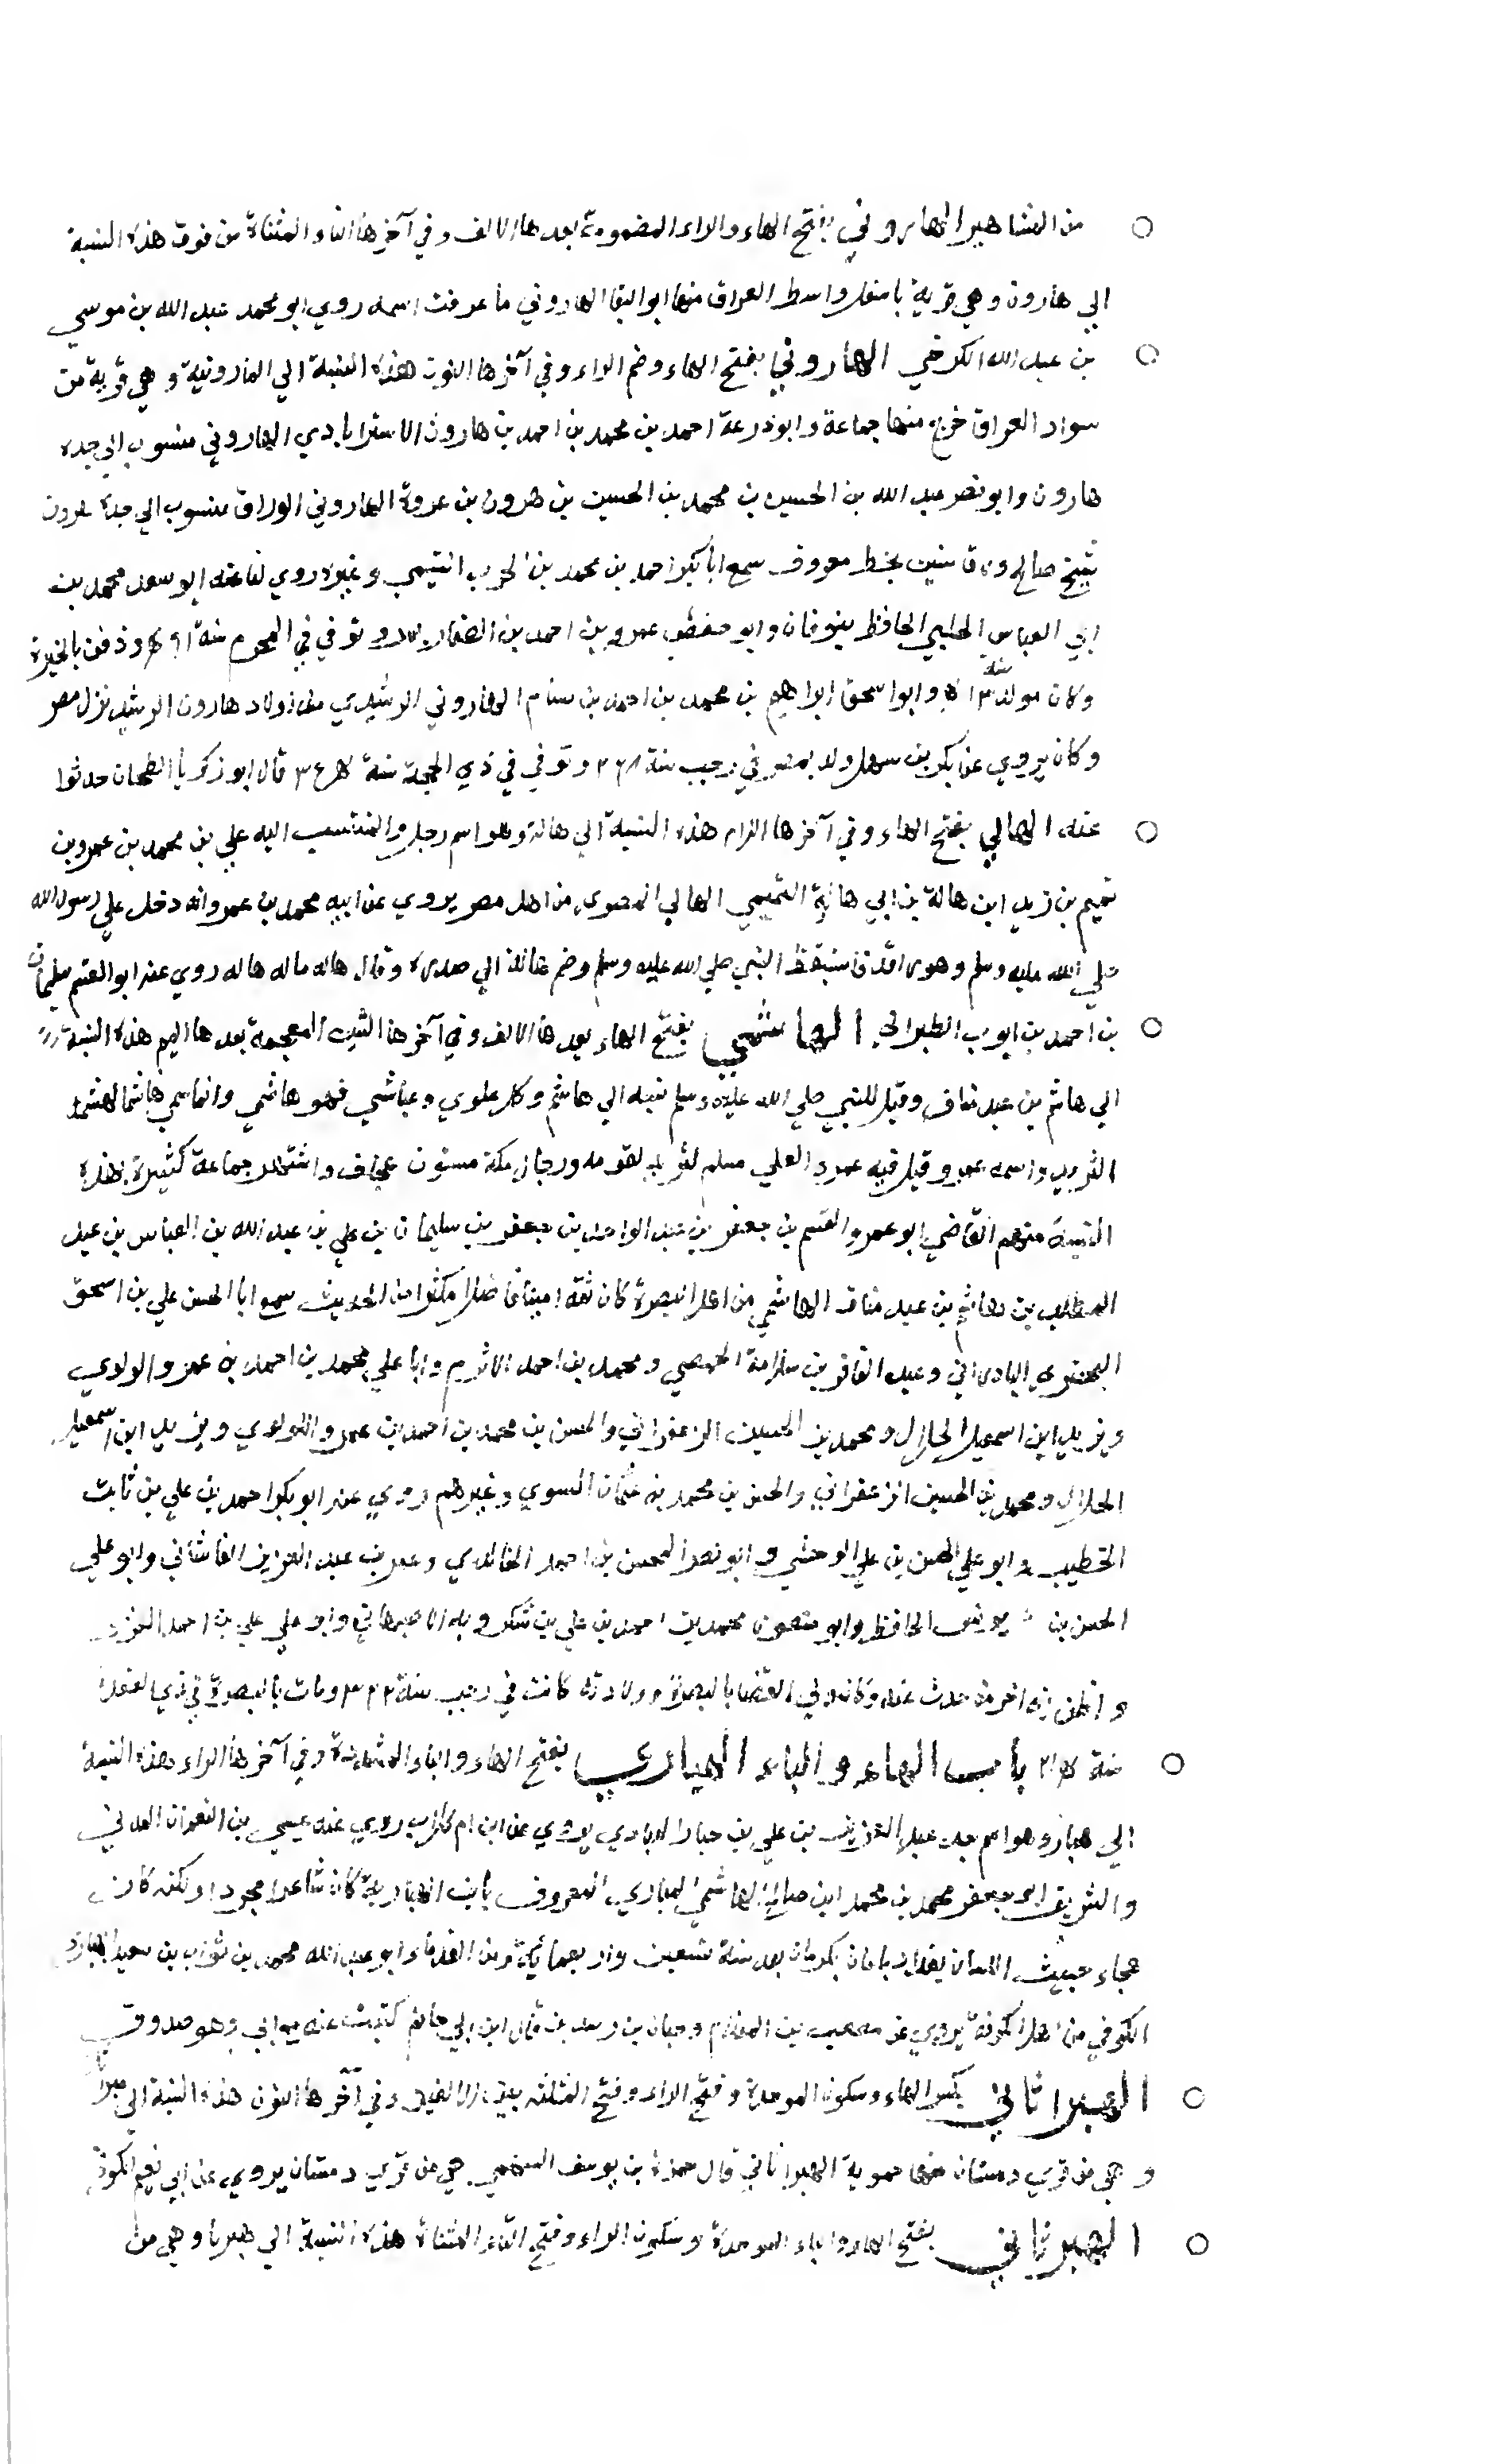 من المشاهير الهاروني بفتح الهاء والراء المضمومة بعدها الالف وفي آخرها التاء المثناة من فوق هذه النسبة
الي هارون وهي قرية باسفل واسط العراق منها ابو البقا الهاروني ما عرفت اسمه روي ابو محمد عبد الله بن موسي
بن عبد الله الكرخي الهاروني بفتح الهاء وضم الراء وفي آخرها النون هذه النسبة الي الهارونية وهي قرية من
سواد العراق خرج منها جماعة وابو ذرعة احمد بن محمد بن احمد بن هارون الاسترابادي الهاروني منسوب الي جده
هارون وابو نصر عبد الله بن الحسين بن محمد بن الحسين بن هرون بن عروة الهاروني الوراق منسوب الي جده هرون
شيخ صالح معروف سمع ابا بكر احمد بن محمد بن الحرب التيمي وغيره روي لنا عنه ابو سعد محمد بن
ابي العباس الخليلي الحافظ بنوقان وابو حفص عمرو بن احمد بن الصفار وتوفي في المحرم سنة ودفن بالحيرة
وكان مولده سنة وابو اسحق ابراهيم بن محمد بن احمد بن الهاروني الرشيدي من اولاد هارون الرشيد نزل مصر
وكان يروي عن بكر بن سهل ولد بمصر في رجب سنة ٢٦٨ وتوفي في ذي الحجة سنة قال ابو زكريا الطحان حدثوا
عنه الهالي بفتح الهاء وفي آخرها اللام هذه النسبة الي هالة وهو اسم رجل والمنتسب اليه علي بن محمد بن عمرو بن
تميم بن زيد ابن هالة بن ابي هالة التميمي الهالي المصري من اهل مصر يروي عن ابيه محمد بن عمرو انه دخل علي رسول الله
صلي الله عليه وسلم وهو راقد فاستيقظ النبي صلي الله عليه وسلم وضم هالة الي صدره وقال هاله هاله هاله روي عنه ابو القسم سليمان
بن احمد بن ايوب الطبراني الهاشمي بفتح الهاء بعدها الالف وفي آخرها الشين المعجمة بعدها الميم هذه النسبة
الي هاشم بن عبد مناف وقيل للنبي صلي الله عليه وسلم نسبه الي هاشم وكل علوي وعباسي فهو هاشمي وانما سمي هاشما لهشمه
الثريد واسمه عمرو وقيل فيه عمرو العلي هشم الثريد لقومه ورجال مكة مسنتون عجاف واشتهر جماعة كثيرة بهذه
النسبة منهم القاضي ابو عمرو القسم بن جعفر بن عبد الواحد بن جعفر بن سليمان بن علي بن عبد الله بن العباس بن عبد
المطلب بن هاشم بن عبد مناف الهاشمي من اهل البصرة كان ثقة امينا فاضلا مكثرا من الحديث سمع ابا الحسن علي بن اسحق
البختري المادراني وعبد الغافر بن سلامة الحمصي ومحمد بن احمد الاثرم وابا علي محمد بن احمد بن عمرو اللولوي
ويزيد ابن اسمعيل الخلال ومحمد بن الحسين الزعفراني والحسن بن محمد بن احمد بن عمرو اللولوي ويزيد ابن اسمعيل
الخلال ومحمد بن الحسين الزعفراني والحسن بن محمد بن عثمان النسوي وغيرهم روي عنه ابو بكر احمد بن علي بن ثابت
الخطيب وابو علي الحسن بن علي الوخشي وابو نصر المحسن بن احمد الخالدي وعمر بن عبد العزيز الفاشاني وابو علي
الحسن بن يونس الحافظ وابو منصور محمد بن احمد بن علي بن شكرويه الاصبهاني وابو علي علي بن احمد التستري
واظن انه اخر من حدث عنه وكان ولي القضا بالبصرة وولادته كانت في رجب سنة ٣٢٢ ومات بالبصرة في ذي القعدة
سنة باب الهاء والباء الهباري بفتح الهاء والباء المشددة وفي آخرها الراء هذه النسبة
الي هبار وهو اسم جد عبد العزيز بن علي بن هبار الهباري يروي عن ابن ام كلاب روي عنه عيسي بن النعمان المدني
والشريف ابو جعفر محمد بن محمد ابن صالح الهاشمي الهباري المعروف بابن الهبارية كان شاعرا مجودا ولكنه كان
هجاء خبيث اللسان بغداد بامات بكرمان بعد سنة تسعين واربعمائة ومن القدماء ابو عبد الله محمد بن ثواب بن سعيد الهباري
الكوفي من اهل الكوفة يروي عن مصعب بن المقدام وحيان بن قال ابن ابي حاتم كتبت عنه مع ابي وهو صدوق
الهبراثاني بكسر الهاء وسكون الموحدة وفتح الراء وفتح المثلثة بين الالفين وفي آخرها النون هذه النسبة الي هبراثان
وهي من قري دهستان منها حمويه الهبراثاني قال حمزة بن يوسف السهمي هي من قري دهستان يروي عن ابي نعيم الكوفي
الهبرتاني بفتح الهاء والباء الموحدة وسكون الراء وفتح التاء المثناة هذه النسبة الي هبرتا وهي من